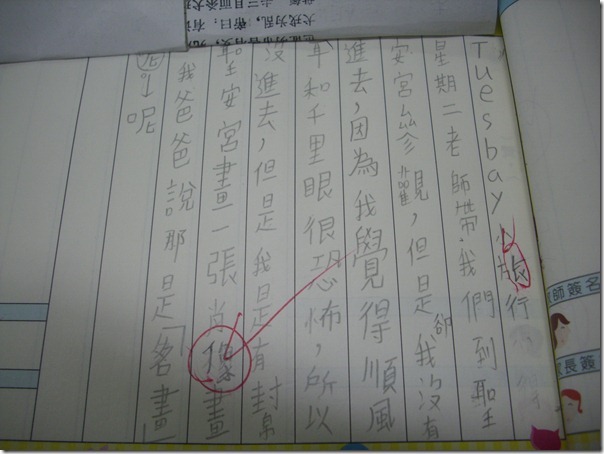 Tuesbay 小旅行
星期二老師帶我們到聖
安宮參觀,但是卻我沒有
進去,因為我覺得順風
耳和千里眼很恐怖,所以
沒進去,但是我是有幫
聖安宮畫一張肖像畫
我爸爸說那是「名畫」
呢
師簽名
長簽